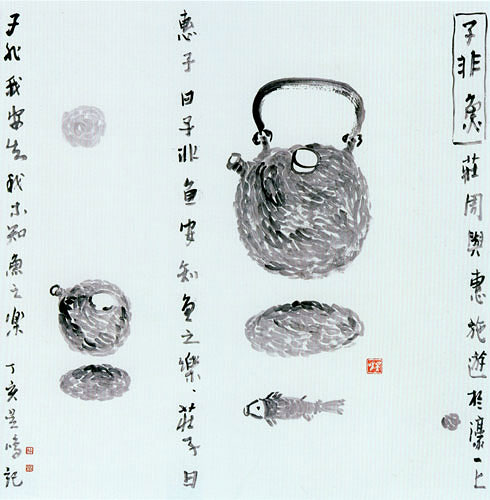 子非魚 莊周與惠施遊於濠上
惠子曰子非魚安知魚之樂、莊子曰
子非我安知我不知魚之樂 丁亥 記